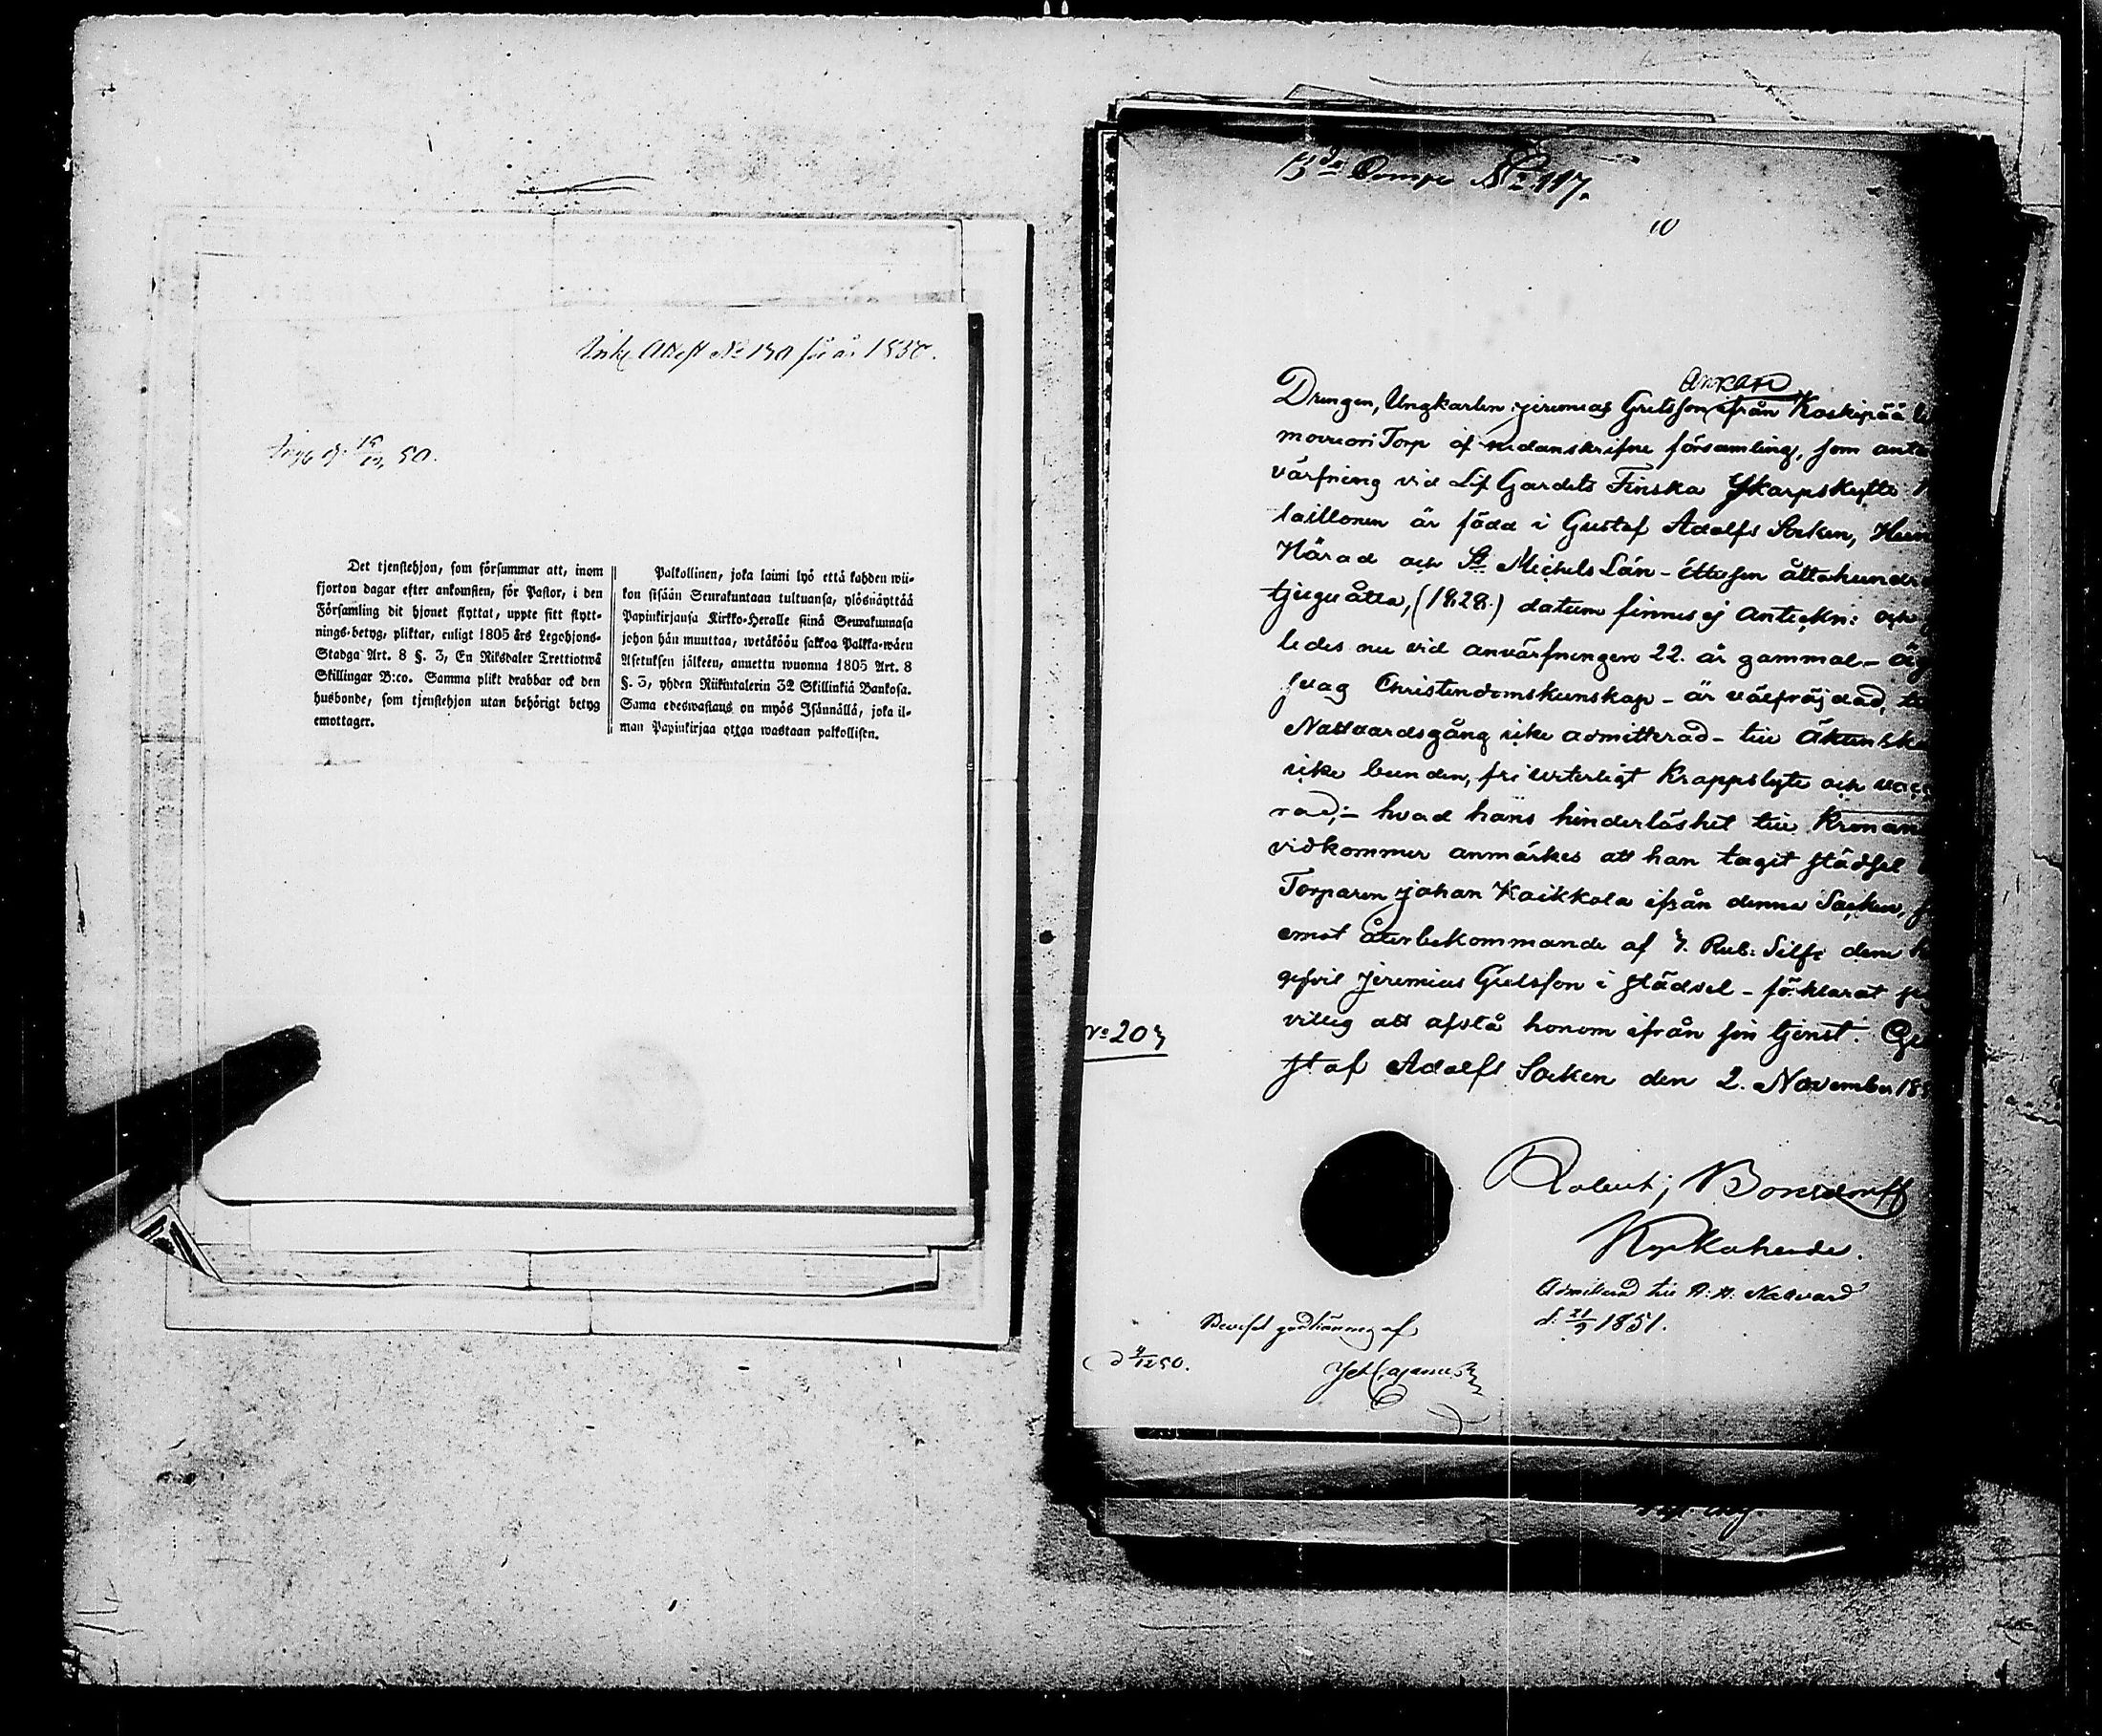 Ink. Attest No 130 för år 1850.
50.
Det tjenstehjon, som försummar att, inom
fjorton dagar efter ankomsten, för Pastor, i den
Församling dit hjonet flyttat, uppte sitt flytt-
nings-betyg, pliktar, enligt 1805 års Legohjons-
Stadga Art. 8 §. 3, En Riksdaler Trettiotwå
Skillingar B:co. Samma plikt drabbar ock den
husbonde, som tjenstehjon utan behörigt betyg
emottager.
Palkollinen, joka laimi lyö että kahden wii-
kon sisään Seurakuntaan tultuansa, ylösnäyttää
Papinkirjansa Kirkko-Heralle siinä Seurakunnasa
johon hän muuttaa, wetäköön sakkoa Palkka-wäen
Asetuksen jälkeen, annettu wuonna 1805 Art. 8
§. 3, yhden Riikintalerin 32 Skillinkiä Bankosa.
Sama edeswastaus on myös Isännällä, joka il-
man Papinkirjaa ottaa wastaan palkollisen.
3dje Comp. No 117.
10
Drengen, Ungkarlen Jeremias Gretsson ifrån Koskipää
Torp af nedanskrifne församling, som anta
värfning vid Lif Gardets Finska Skarpskytte
taillonen är född i Gustaf Adolfs Socken,
Härad och St Michels Län - Ettusen åttahundra
tjuguåtta, (1828.) datum finnes ej anteckn: och
ledes nu vid anvärfningen 22. år gammal - äg
svag Christendomskunskap - är välfräjdad, til
Nattvardsgång icke admitterad - till Äktenska
icke bunden, fri ifrån Kroppslyte och vacc
rad; - hvad hans hinderlöshet till Kronan
vidkommer anmärkes att han tagit städsel
Torparen Johan Kaikkola ifrån denna Socken,
emot återbekommande af 7. Rub. Silf: dem
gifvit Jeremias Gretsson i städsel - förklarat
villig att afstå honom ifrån sin tjenst. Gu
staf Adolfs Socken den 2. November 18
No 207
Robert Bonsdorff
Kyrkoherde.
Admitterad till H. H. Nattvard
d. 21/9 1851.
Beviset godkännes af
d 4/12 50.